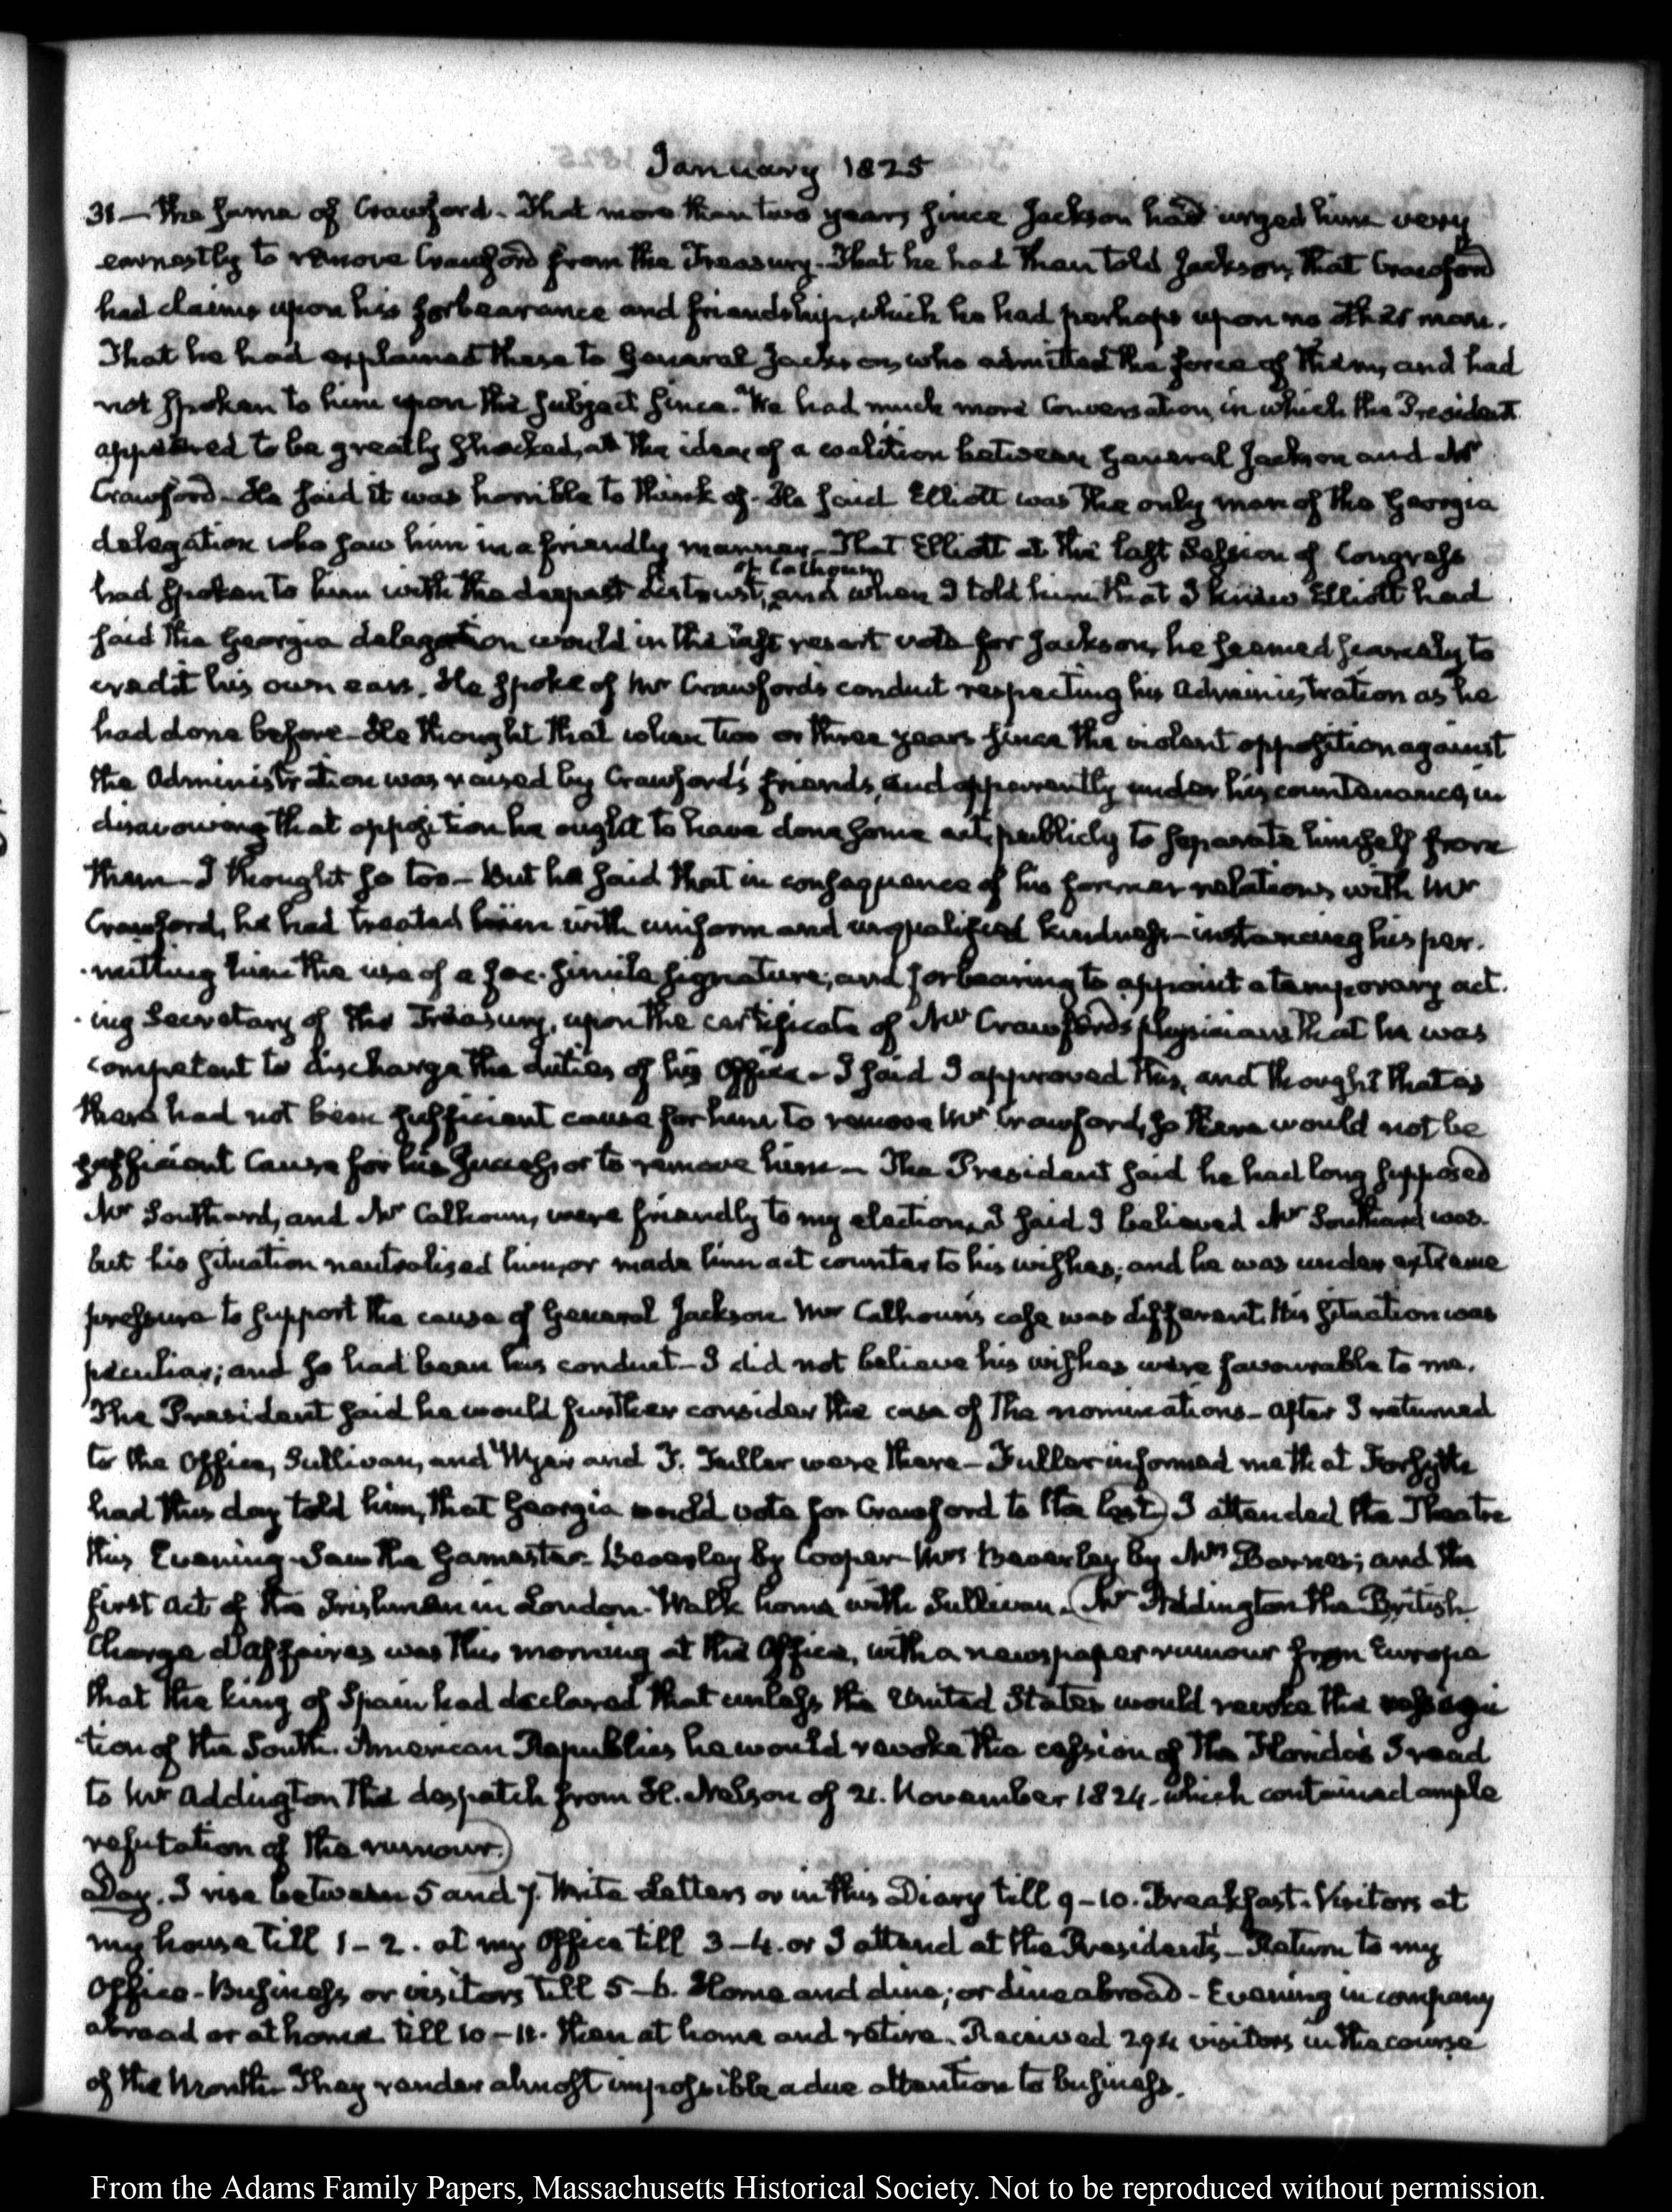 January 1825
31 — the same of Crawford. That more than two years since Jackson had urged him very
earnestly to remove Crawford from the Treasury. That he had then told Jackson, that Crawford
had claims upon his forbearance and friendship, which he had perhaps upon no other man.
That he had explained these to General Jackson, who admitted the force of them, and had
not spoken to him upon the subject since. We had much more conversation, in which the President
appeared to be greatly shocked, at the idea, of a coalition between General Jackson and Mr
Crawford. He said it was horrible to think of. He said Elliott was the only man of the Georgia
delegation who saw him in a friendly manner. That Elliott at the last Session of Congress
of Calhoun
had spoken to him with the deepest distrust, and when I told him that I knew Elliott had
said the Georgia delegation would in the last resort vote for Jackson, he seemed scarcely to
credit his own ears. He spoke of Mr Crawford's conduct respecting his Administration as he
had done before. He thought that when two or three years since the violent opposition against
the Administration was raised by Crawford's friends, and apparently under his countenance, in
disavowing that opposition he ought to have done some act, publicly to separate himself from
them — I thought so too — But he said that in consequence of his former relations with Mr
Crawford, he had treated him with uniform and unqualified kindness — instancing his per-
-mitting him the use of a fac-simile signature; and forbearing to appoint a temporary act-
-ing Secretary of the Treasury, upon the certificate of Mr Crawford's physicians that he was
competent to discharge the duties of his Office — I said I approved this, and thought that as
there had not been sufficient cause for him to remove Mr Crawford, so there would not be
sufficient cause for his Successor to remove him — The President said he had long supposed
Mr Southard, and Mr Calhoun, were friendly to my election. I said I believed Mr Southard was.
but his situation neutralised him, or made him act counter to his wishes; and he was under extreme
pressure to support the cause of General Jackson. Mr Calhoun's case was different. His situation was
peculiar; and so had been his conduct — I did not believe his wishes were favourable to me.
The President said he would further consider the case of the nominations — After I returned
to the Office, Sullivan, and Wyer and T. Fuller were there — Fuller informed me that Forsyth
had this day told him, that Georgia would vote for Crawford to the last) I attended the Theatre
this Evening. Saw the Gamester. Beverley by Cooper — Mrs Beverley by Mrs Barnes; and the
first Act of the Irishman in London. Walk home with Sullivan. (Mr Addington the British
Charge d'Affaires was this morning at the Office, with a newspaper rumour from Europe
that the king of Spain had declared that unless the United States would revoke the recogni
-tion of the South-American Republics he would revoke the cession of the Florida's I read
to Mr Addington the despatch from H. Nelson of 21. November 1824. which contained ample
refutation of the rumour.)
Day. I rise between 5 and 7. Write Letters or in this Diary till 9–10. Breakfast. Visitors at
my house till 1–2. at my Office till 3–4. or I attend at the President's — Return to my
Office — Business or visitors till 5–6. Home and dine; or dine abroad — Evening in company
abroad or at home till 10–11. then at home and retire. Received 294 visitors in the course
of the Month. They render almost impossible a due attention to business.
From the Adams Family Papers, Massachusetts Historical Society. Not to be reproduced without permission.